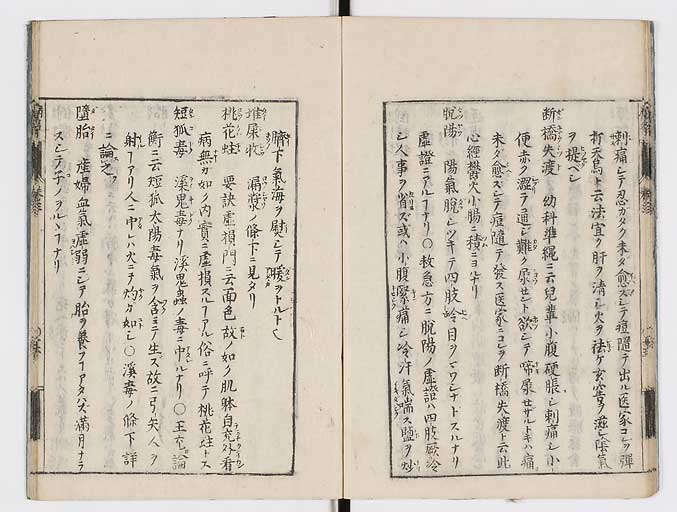 刺痛シテ忍カタク未タ愈スシテ痘隨テ出ル医家コレヲ彈
折禾鳥ト云法宜ク肝ヲ清シ火ヲ祛ケ玄府ヲ滋シ除氣
ヲ提ヘシ
断橋失渡 幼科準繩ニ云兒輩小腹硬脹シ刺痛シ小
便赤ク澀テ通シ難ク尿セント欲シテ啼尿セサルトキハ痛
未タ愈スシテ痘隨テ發ス医家コレヲ断橋失渡ト云此
心經欝火小腸ニ積ニヨレリ
脱陽 陽氣脱シツキテ四肢冷目ヲミワシナトスルナリ
虚證ニアルフナリ〇救急方ニ脱陽ノ虚證ハ四肢厥冷
シ人事ヲ省ズ或ハ小腹緊痛シ冷汗氣喘ス鹽ヲ炒
臍下氣海ヲ熨シテ暖ヲトルト也
堆屎收 漏瘡ノ條下ニ見タリ
桃花蛀 要訣虚損門ニ云面色故ノ如ク肌躰自充外看
病無カ如ク内實ニ虚損スルフアル俗ニ呼テ桃花蛀トス
短狐毒 溪鬼毒ナリ溪鬼蟲ノ毒ニ中ルナリ〇王充論
衡ニ云短狐太陽毒氣ヲ含ミテ生ズ故ニ弓矢人ヲ
射フアリ人ニ中レハ火ニテ灼カ如シ〇溪毒ノ條下詳
ニ論之
墮胎 産婦血氣虚弱ニシテ胎ヲ養フフアタハス滿月ナラ
スシテ子ノヲルヽフナリ